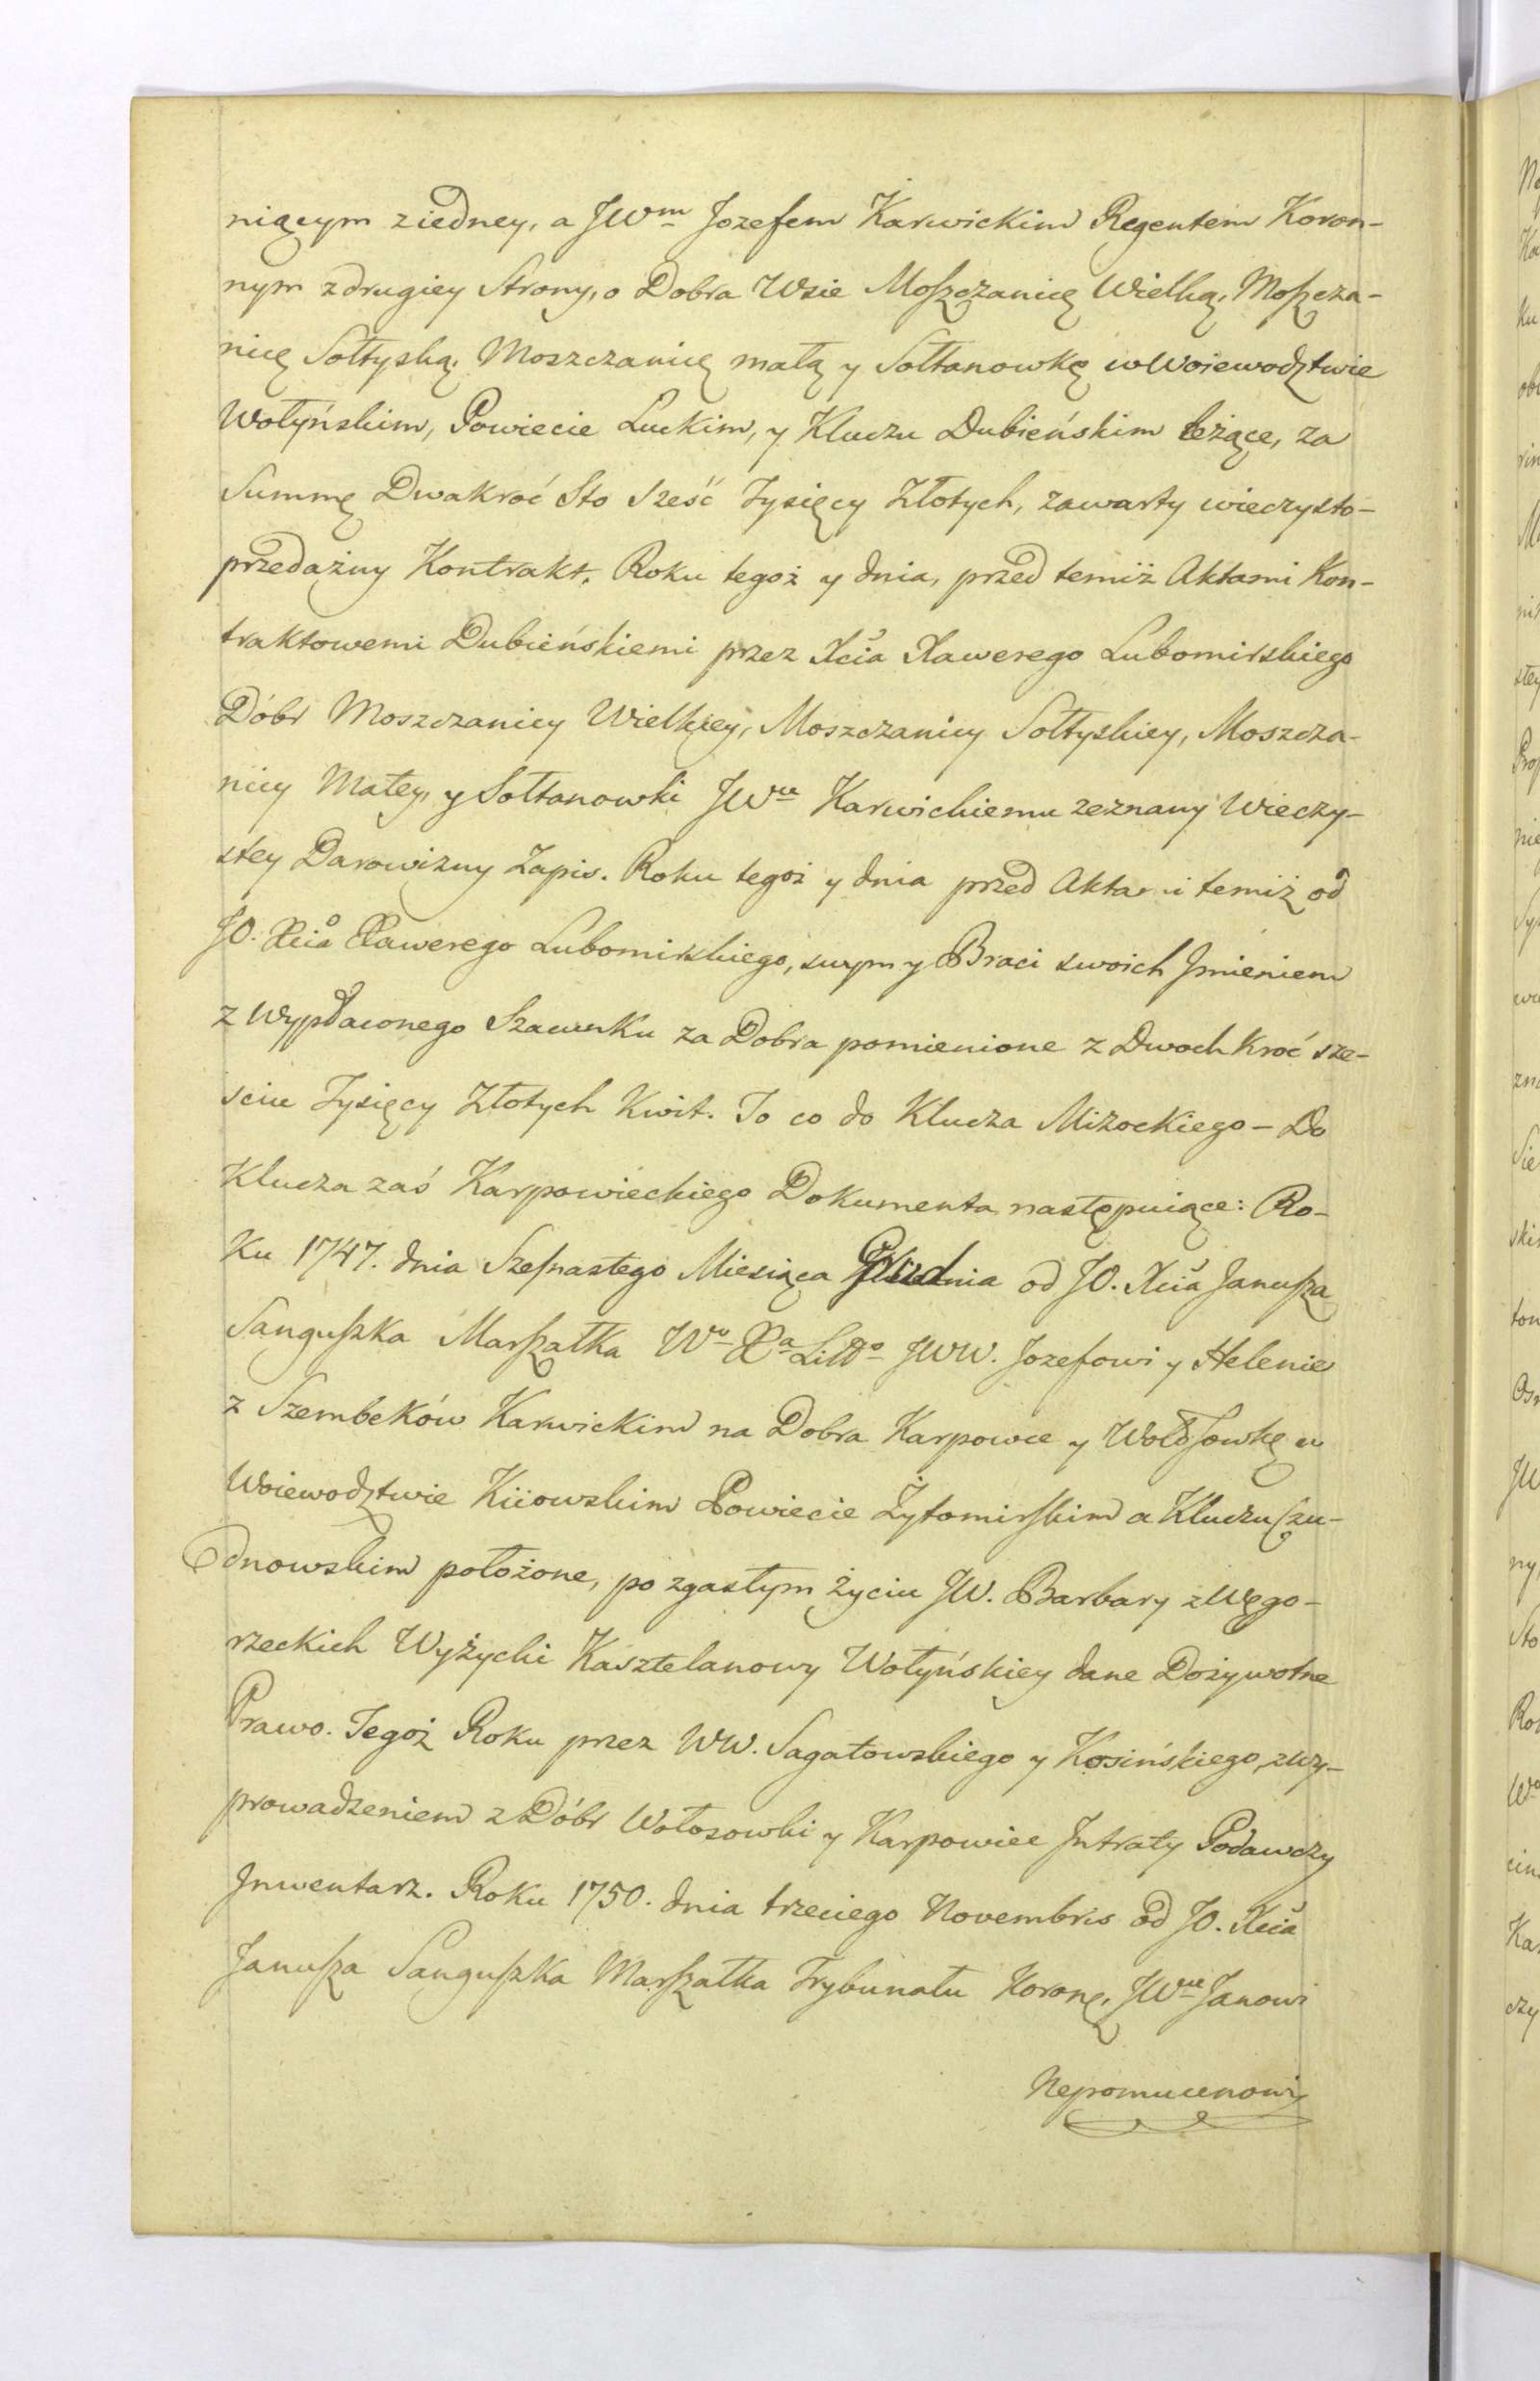 niącym z iedney, a JWm Jozefem Karwickim Regentem Koron-
nym z drugiey Strony, o Dobra Wsie Moszczanicę Wielką, Moszcza-
nicę Sołtyską, Moszczanicę małą y Sołtanowkę w Woiewodztwie
Wołyńskim, Powiecie Luckim, y Kluczu Dubieńskim leżące, za
Summę Dwakroć Sto Sześć Tysięcy Złotych, zawarty wieczysto-
przedażny Kontrakt. Roku tegoż y dnia, przed temiż Aktami Kon-
traktowemi Dubieńskiemi przez Xcia Xawerego Lubomirskiego
Dóbr Moszczanicy Wielkiey, Moszczanicy Sołtyskiey, Moszcza-
nicy Małey, y Sołtanowki JWu Karwickiemu zeznany Wieczy-
stey Darowizny Zapis. Roku tegoż y dnia przed Aktami temiż od
JO. Xcia Xawerego Lubomirskiego, swym y Braci swoich Jmieniem
z Wypłaconego Szacunku za Dobra pomienione z Dwoch kroć sze-
sciu Tysięcy Złotych Kwit. To co do Klucza Mizockiego - Do
Klucza zaś Karpowieckiego Dokumenta następuiące: Ro-
ku 1747. dnia Szesnastego Miesiąca Grudnia od JO. Xcia Janusza
Sanguszka Marszałka Wo Xa Litto JWW. Jozefowi y Helenie
z Szembeków Karwickim na Dobra Karpowce y Wołosowkę w
Woiewodztwie Kiiowskim Powiecie Żytomirskim a Kluczu Czu-
dnowskim położone, po zgasłym życiu JW. Barbary z Węgo-
rzeckich Wyżycki Kasztelanowy Wołyńskiey dane Dożywotne
Prawo. Tegoż Roku przez WW. Sagatowskiego y Kosińskiego, z wy-
prowadzeniem z Dóbr Wołosowki y Karpowiec Jntraty Podawczy
Jnwentarz. Roku 1750. dnia trzeciego Novembris od JO. Xcia
Janusza Sanguszka Marszałka Trybunału Koronę, JWu Janowi
Nepomucenowi